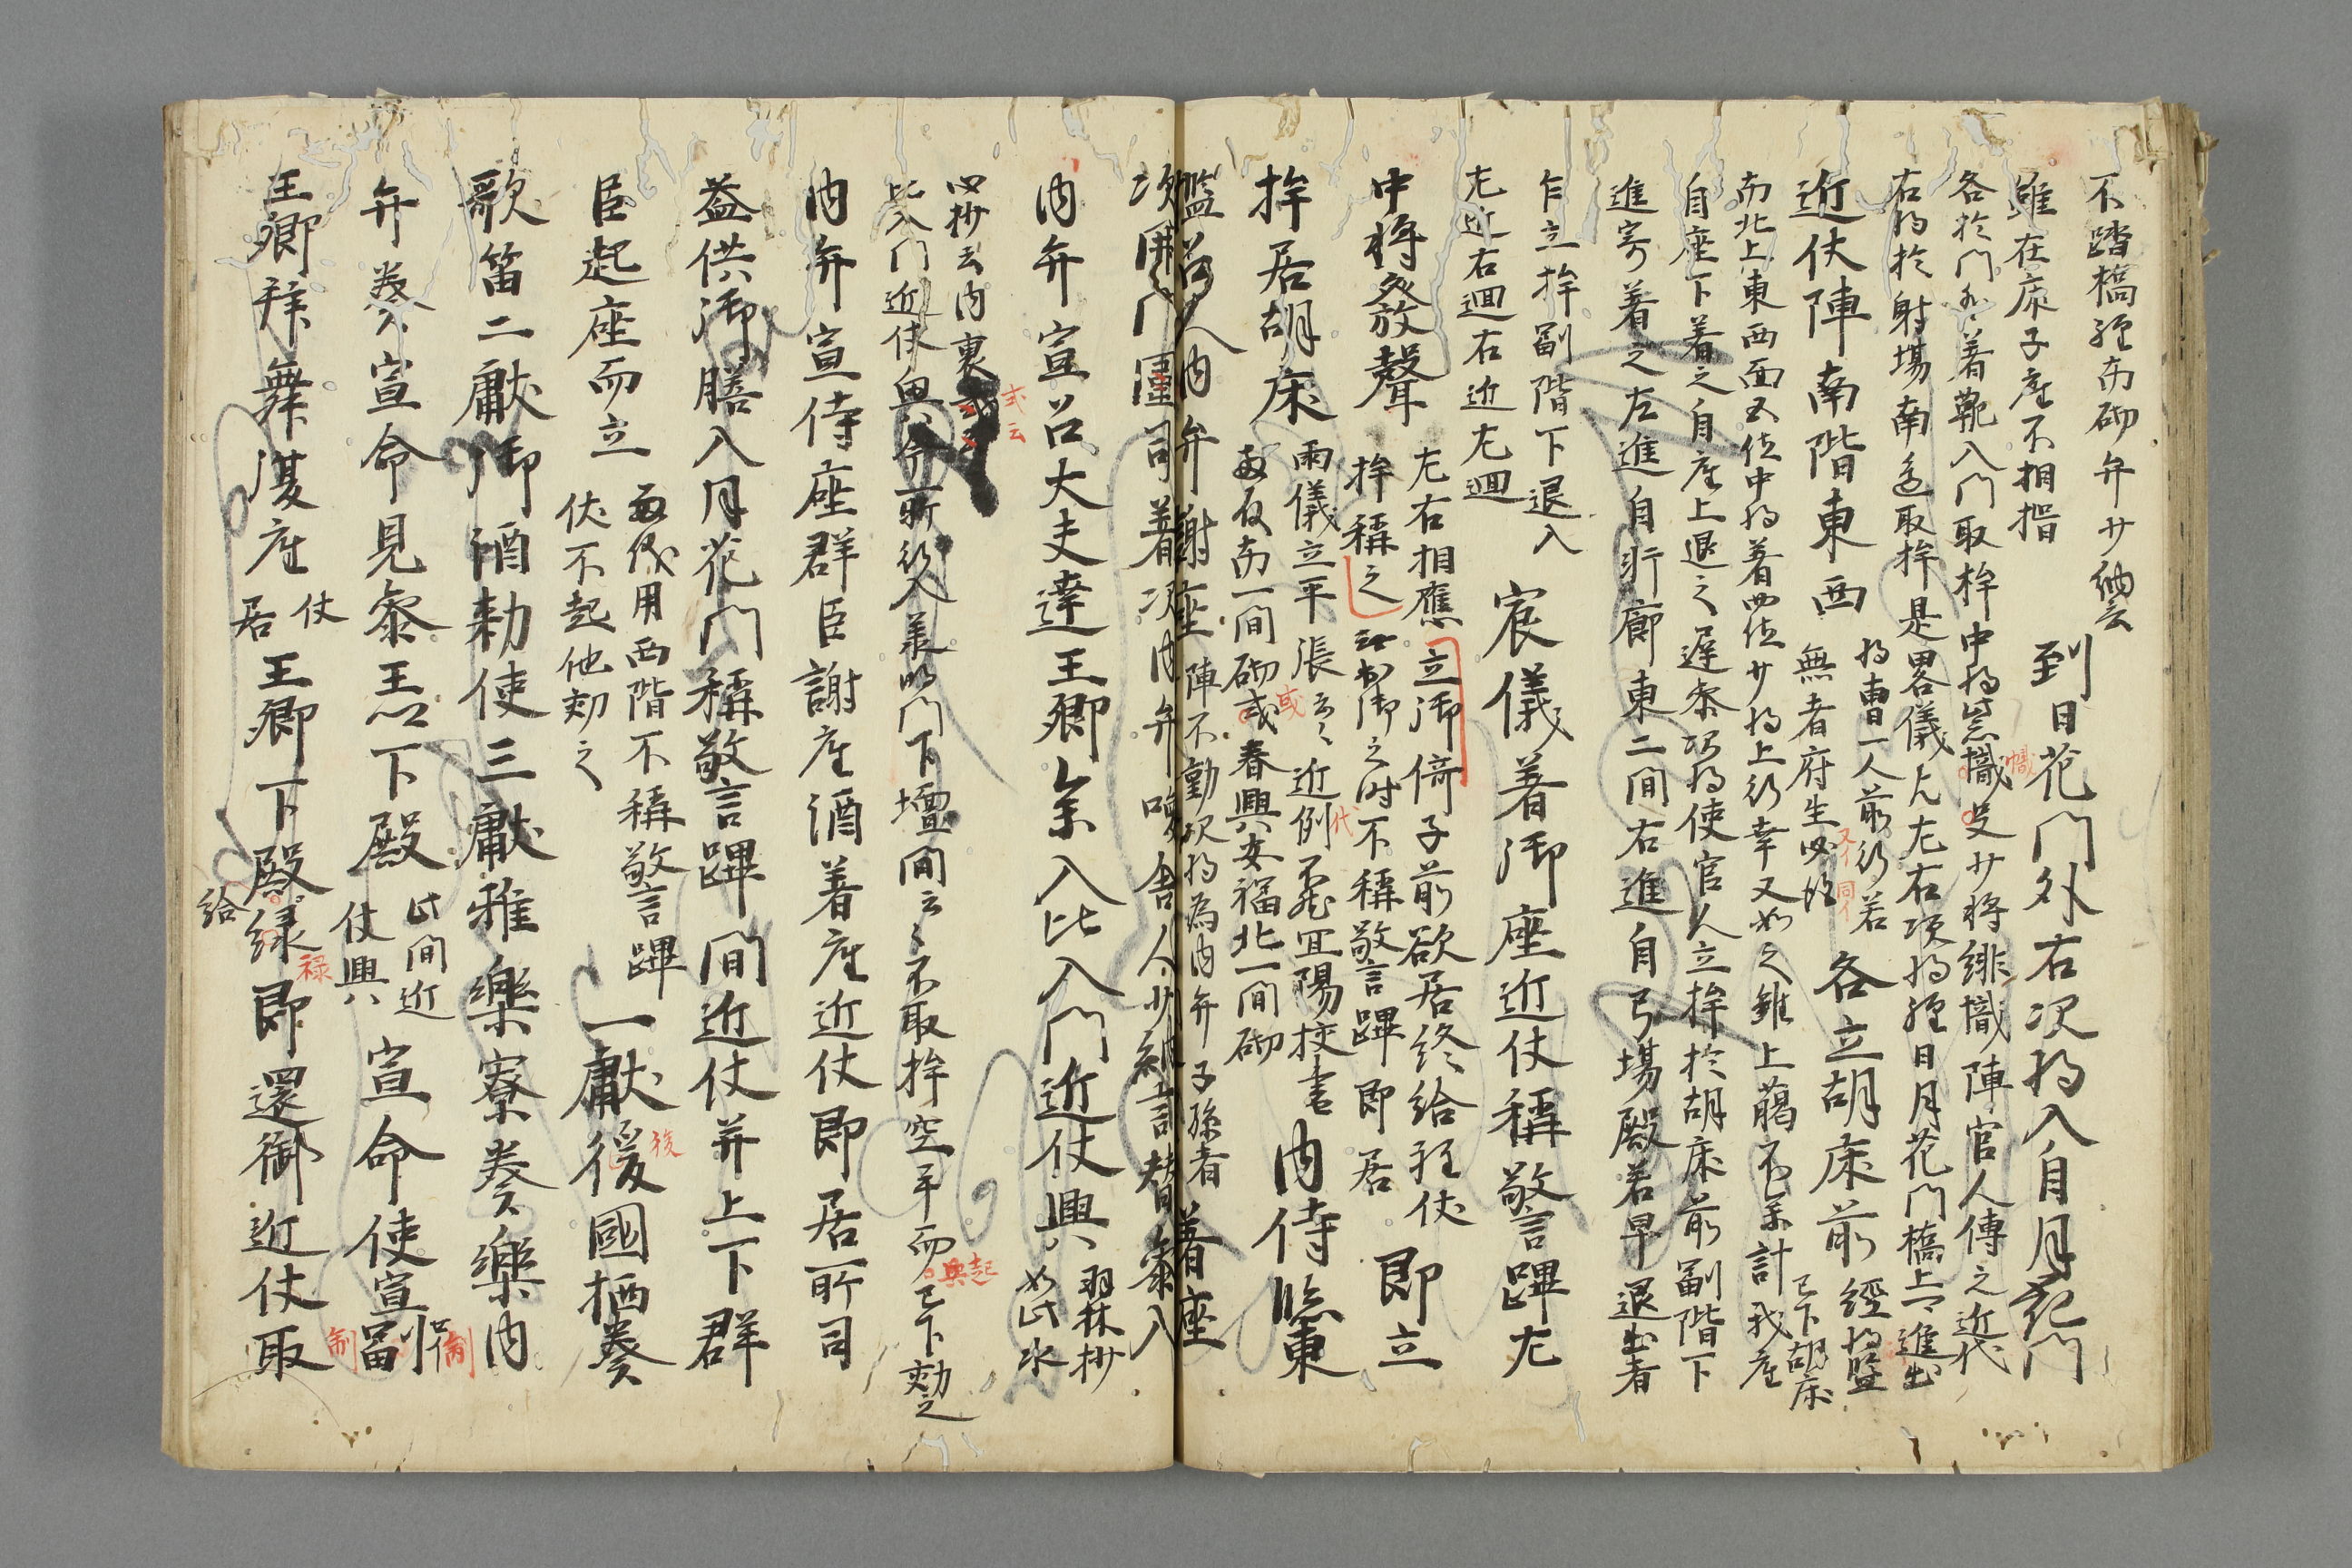 不踏橋經南砌弁少納言
雖在床子座不相揖
到日花門外右次將入自月花門
各於門外着靴入門取桙中將紫幟少將緋幟陣官人傳之近代
右將於射場南邊取桙是畧儀左右次將經日月花門橋上進出
近仗陣南階東西
將曹一人前行若
無者府生
各立胡床前
經將監
已下胡床
南北上東西面五位中將着四位少將上行幸又如之雖上﨟不計我座
自座下着之自座上退之遲參次將使官人立桙於胡床前副階下
進寄着之左進自軒廊東二間右進自弓場殿若早退出者
乍立桙副階下退入
左近右廻右近左廻
宸儀着御座近仗稱警蹕左
中將發聲
左右相應立御倚子前欲居終給程使
桙稱之
御之時不稱警蹕即居
即立
桙居胡床
雨儀立平張云々近例不然宜陽校書
南一間砌或春興安福北一間砌
内侍臨東
檻召人内弁謝座
陣不動次將為内弁子孫者
着座
次開門闈司着次内弁喚舍人少納言替參入
内弁宣召大夫達王卿參入比入門近仗興
羽林抄
如此
四抄云内裏式云
比入門近仗興今所行入承明門下壇間云々不取桙空手而已下効之
内弁宣侍座群臣謝座酒着座近仗即居所司
益供御膳入月花門稱警蹕間近仗并上下群
臣起座而立
用西階不稱警蹕
仗不起他効之
一獻後國栖奏
歌笛二獻御酒勅使三獻雅樂寮奏樂内
弁奏宣命見參王下殿
此間近
仗興
宣命使宣制
王卿拜舞復座
仗
居
王卿下殿給祿即還御近仗取